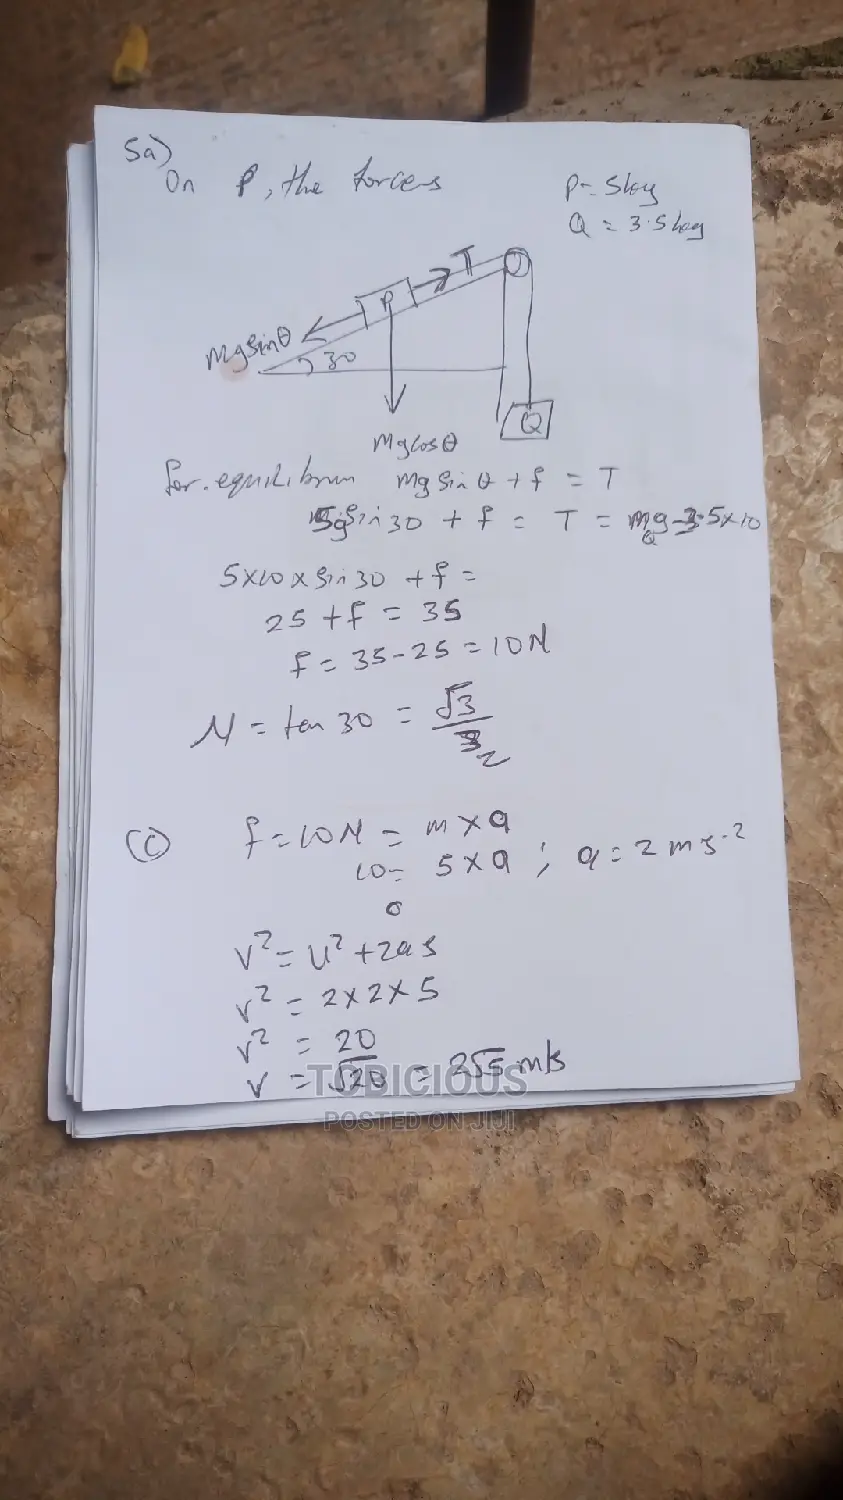 5a)
On P, the forces
P = 5kg
Q = 3.5kg
T
P
MgSinθ
30
Q
MgCosθ
for equilibrum Mg Sin θ + f = T
5gSin 30 + f = T = mQg = 3.5x10
5x10 x Sin 30 + f =
25 + f = 35
f = 35 - 25 = 10N
M = tan 30 = √3
(c) f = 10N = m x a
10 = 5 x a ; a = 2 ms⁻²
o
v² = u² + 2as
v² = 2 x 2 x 5
v² = 20
v = √20 = 2√5 m/s
TOBICIOUS
POSTED ON JIJI